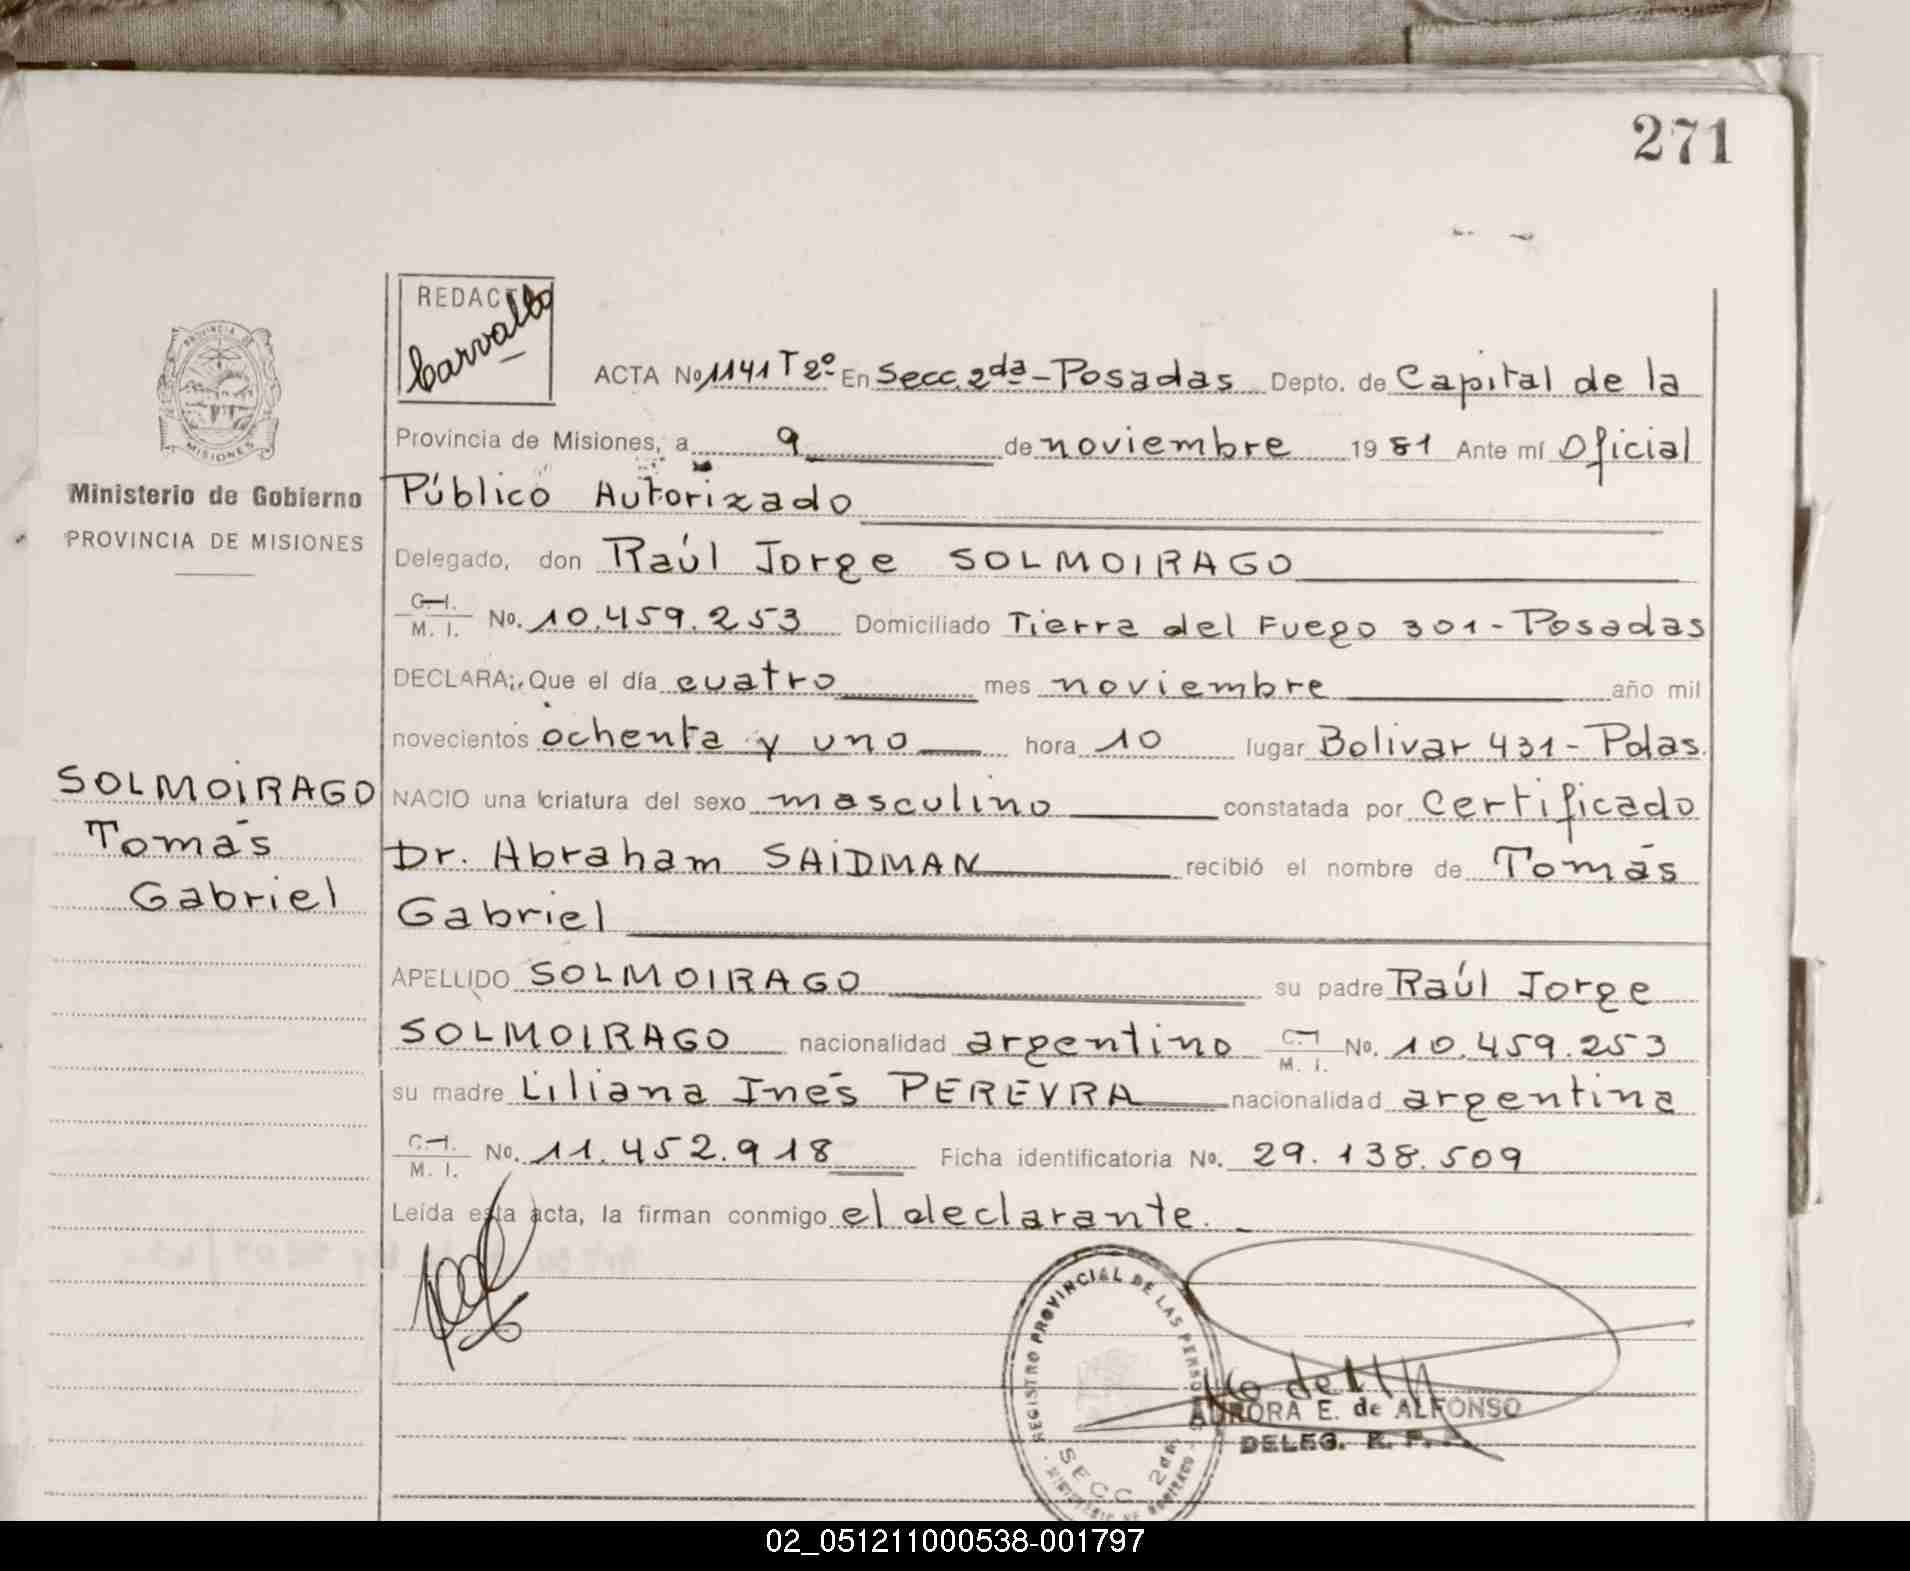 271
REDACT
Carvallo
ACTA No 1141 T 2º En Secc. 2da - Posadas Depto. de Capital de la
Provincia de Misiones, a 9 de noviembre 1981 Ante mí Oficial
Público Autorizado
Delegado, don Raúl Jorge SOLMOIRAGO
C. I. M. I. No. 10.459.253 Domiciliado Tierra del Fuego 301 - Posadas
DECLARA; Que el día cuatro mes noviembre año mil
novecientos ochenta y uno hora 10 lugar Bolivar 431 - Pdas.
NACIO una criatura del sexo masculino constatada por certificado
Dr. Abraham SAIDMAN recibió el nombre de Tomás
Gabriel
APELLIDO SOLMOIRAGO su padre Raúl Jorge
SOLMOIRAGO nacionalidad argentino C. I. M. I. No. 10.459.253
su madre Liliana Inés PEREYRA nacionalidad argentina
C. I. M. I. No. 11.452.918 Ficha identificatoria No. 29.138.509
Leída esta acta, la firman conmigo el declarante.
PROVINCIA DE
MISIONES
Ministerio de Gobierno
PROVINCIA DE MISIONES
SOLMOIRAGO
Tomás
Gabriel
REGISTRO PROVINCIAL DE LAS PERSONAS
SECC 2da
AURORA E. de ALFONSO
DELEG. R. P.
02_051211000538-001797